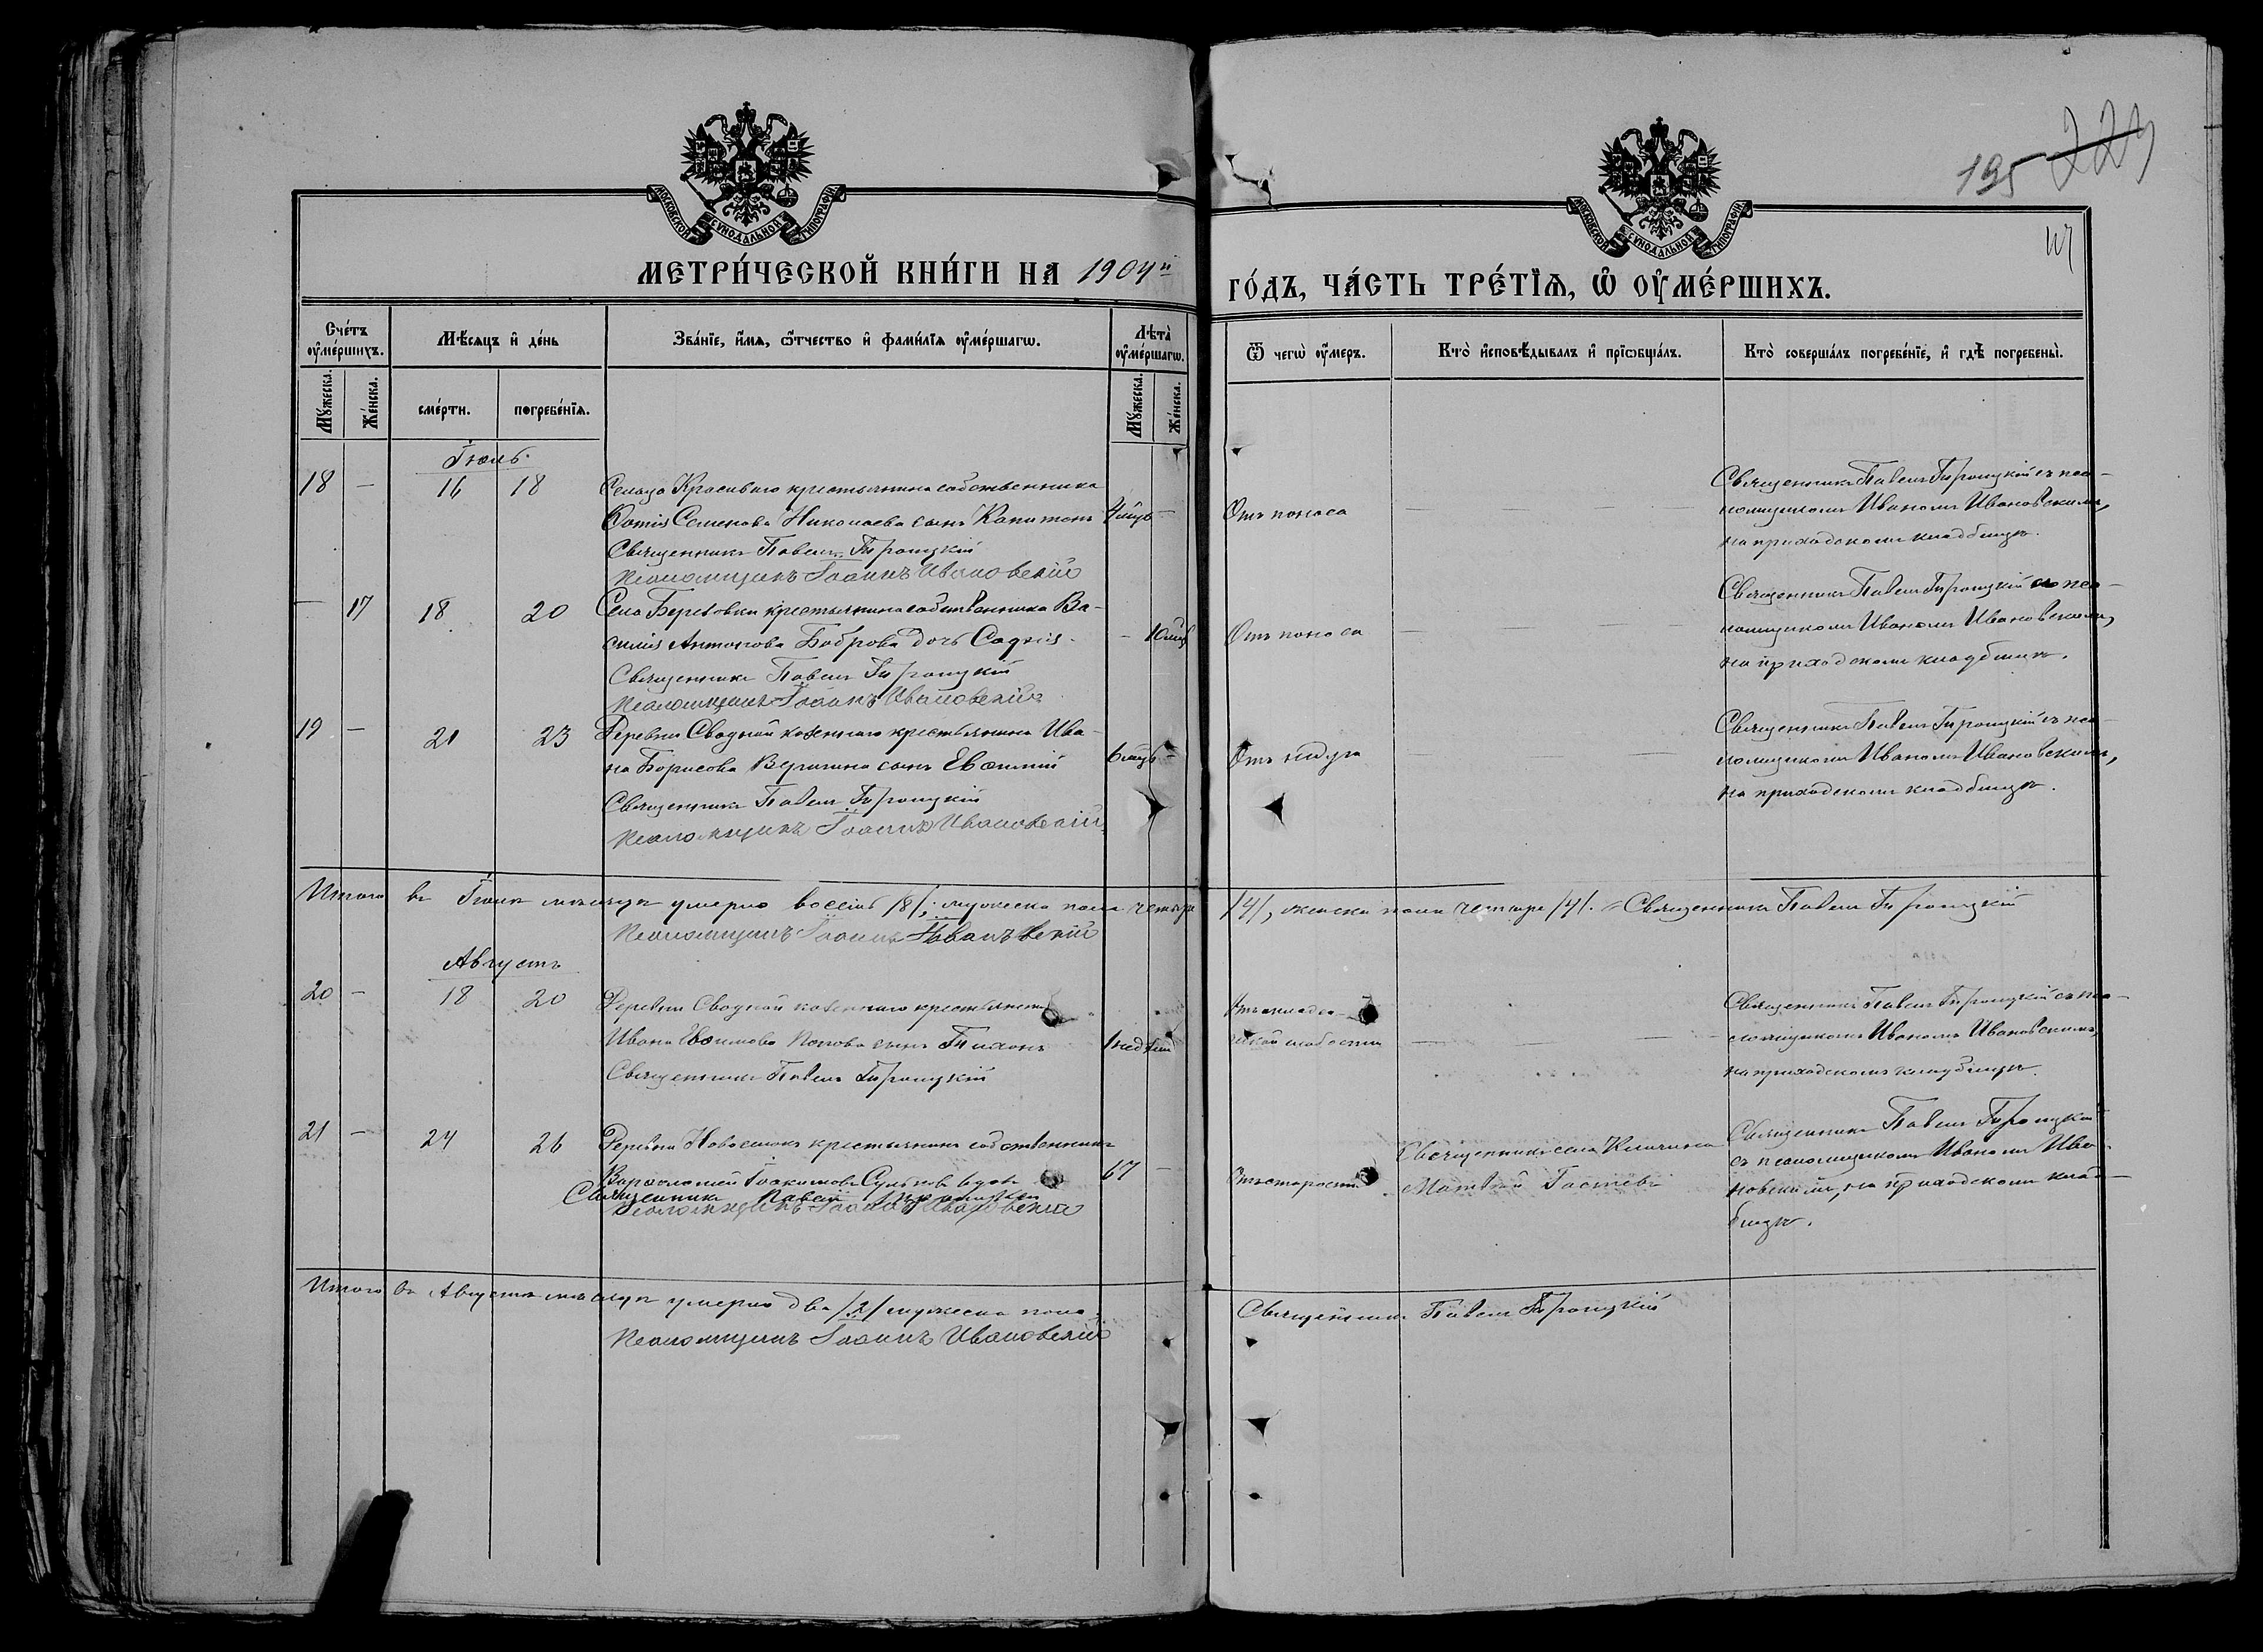 195 223
МОСКОВСКОЙ СѴНОДАЛЬНОЙ ТИПОГРАФІИ
МОСКОВСКОЙ СѴНОДАЛЬНОЙ ТИПОГРАФІИ
МЕТРИ́ЧЕСКОЙ КНИ́ГИ НА 1904й
ГО́ДЪ, ЧА́СТЬ ТРЕ́ТІѦ, Ѿ ОУМЕ́РШИХЪ.
Сче́тъ оуме́ршихъ.
Мѣ́сяцъ и де́нь
Зва́нїе, и́мѧ, ѻ́тчество и фами́лїѧ оуме́ршагѡ.
Лѣта̀ оуме́ршагѡ.
Ѿ чегѡ̀ оу́меръ.
Кто̀ и҆сповѣ́дывалъ и҆ прїѡбща́лъ.
Кто̀ соверша́лъ погребе́нїе, и҆ гдѣ̀ погребены̀.
Мꙋ́жеска.
Же́нска.
сме́рти.
погребе́нїѧ.
Мꙋ́жеска.
Же́нска.
Іюль.
18 — 16 18 Сельца Красиваго крестьянина собственника
Ѳотія Семенова Николаева сынъ Капитонъ 4 мѣс —
Священникъ Павелъ Троицкій
Псаломщикъ Іоаннъ Ивановскій
Отъ поноса
Священникъ Павелъ Троицкій съ пса-
ломщикомъ Иваномъ Ивановскимъ,
на приходскомъ кладбищѣ.
— 17 18 20 Села Березовки крестьянина собственника Ва-
силія Антонова Боброва дочь Софія
Священникъ Павелъ Троицкій
Псаломщикъ Іоаннъ Ивановскій
— 10 мѣс
Отъ поноса
Священникъ Павелъ Троицкій съ пса-
ломщикомъ Иваномъ Ивановскимъ,
на приходскомъ кладбищѣ.
19 — 21 23 Деревни Сводной казеннаго крестьянина Ива-
на Борисова сынъ Евѳимій 6 мѣс —
Священникъ Павелъ Троицкій
Псаломщикъ Іоаннъ Ивановскій
Священникъ Павелъ Троицкій съ пса-
ломщикомъ Иваномъ Ивановскимъ,
на приходскомъ кладбищѣ.
Итого въ Іюлѣ мѣсяцѣ умерло восемь /8/; мужеска пола четыре /4/, женска пола четыре /4/. Священникъ Павелъ Троицкій
Псаломщикъ Іоаннъ Ивановскій
Августъ
20 — 18 20 Деревни Сводной казеннаго крестьянина
Ивана Евѳимова Попова сынъ Тихонъ
Священникъ Павелъ Троицкій
Отъ младен-
ческой слабости
Священникъ Павелъ Троицкій съ пса-
ломщикомъ Иваномъ Ивановскимъ,
на приходскомъ кладбищѣ.
21 — 24 26 Деревни крестьянинъ собственникъ
Варѳоломей Іоакимовъ вдов 67 —
Священникъ Павелъ Троицкій
Псаломщикъ Іоаннъ Ивановскій
Отъ старости
Священникъ села
Матвѣй
Священникъ Павелъ Троицкій
съ псаломщикомъ Иваномъ Ива-
новскимъ, на приходскомъ клад-
бищѣ.
Итого въ Августѣ мѣсяцѣ умерло два /2/ мужеска пола.
Псаломщикъ Іоаннъ Ивановскій
Священникъ Павелъ Троицкій